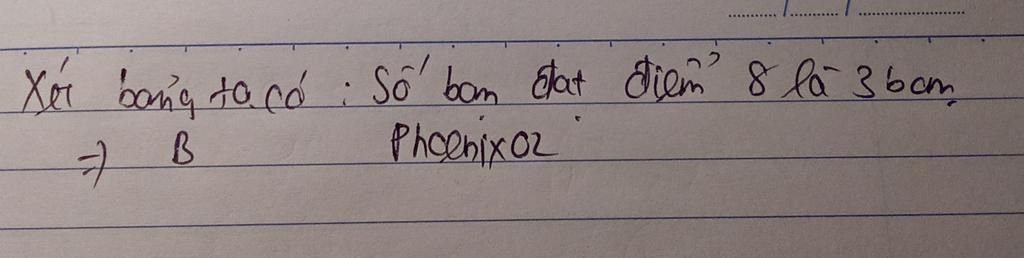 Xét bảng ta có : Số bạn đạt điểm 8 là 3 bạn
=> B Phoenixoz